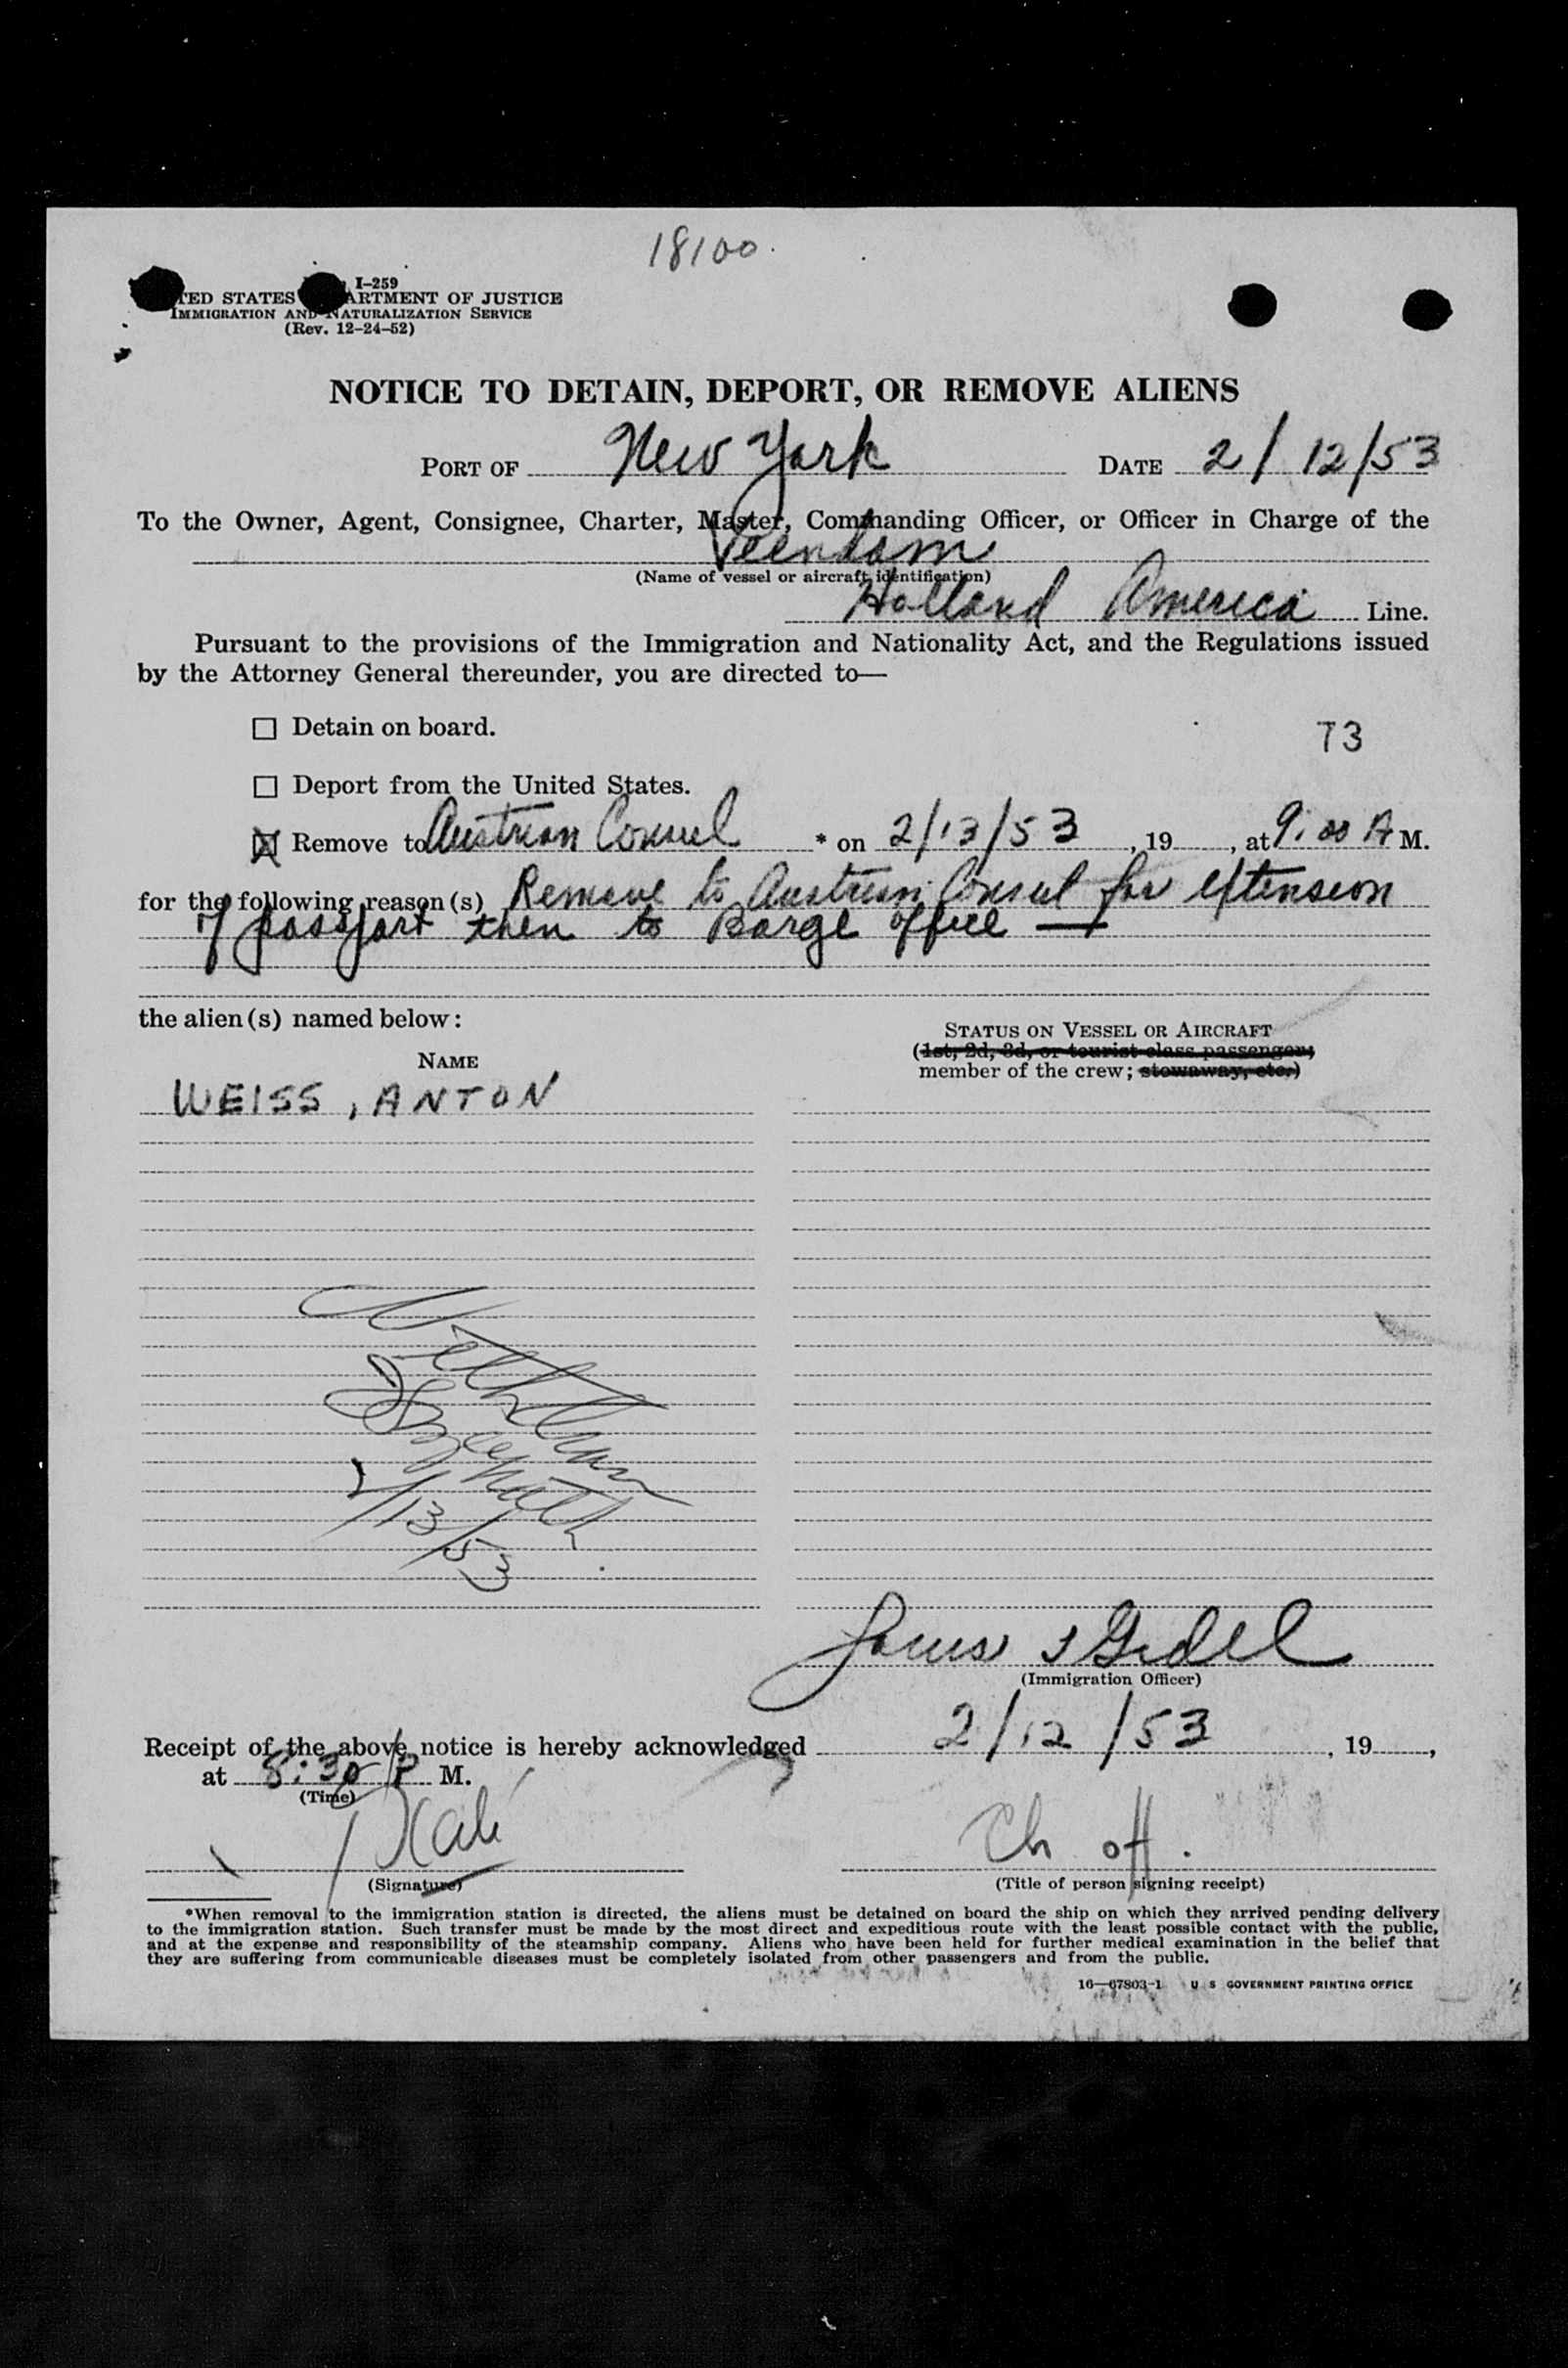 18100.
I-259
TED STATES ARTMENT OF JUSTICE
IMMIGRATION AND NATURALIZATION SERVICE
(Rev. 12-24-52)
NOTICE TO DETAIN, DEPORT, OR REMOVE ALIENS
PORT OF New York DATE 2/12/53
To the Owner, Agent, Consignee, Charter, Master, Commanding Officer, or Officer in Charge of the
Veendam
(Name of vessel or aircraft identification)
Holland America Line.
Pursuant to the provisions of the Immigration and Nationality Act, and the Regulations issued
by the Attorney General thereunder, you are directed to—
☐ Detain on board.
73
☐ Deport from the United States.
☒ Remove to Austrian Consul * on 2/13/53, 19 , at 9:00 A M.
for the following reason(s) Remove to Austrian Consul for extension
of passport then to Barge office —
the alien(s) named below:
STATUS ON VESSEL OR AIRCRAFT
(1st, 2d, 3d, or tourist class passenger;
NAME
member of the crew; stowaway, etc.)
WEISS, ANTON
2/13/53
(Immigration Officer)
Receipt of the above notice is hereby acknowledged 2/12/53, 19 ,
at 8:30 P M.
(Time)
Ch off.
(Signature) (Title of person signing receipt)
*When removal to the immigration station is directed, the aliens must be detained on board the ship on which they arrived pending delivery
to the immigration station. Such transfer must be made by the most direct and expeditious route with the least possible contact with the public,
and at the expense and responsibility of the steamship company. Aliens who have been held for further medical examination in the belief that
they are suffering from communicable diseases must be completely isolated from other passengers and from the public.
16—67803-1 U S GOVERNMENT PRINTING OFFICE